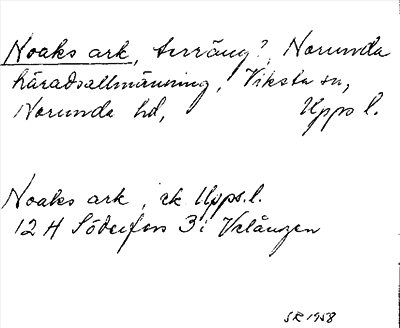 Noaks ark, terräng?, Norunda
häradsallmänning, Viksta sn,
Norunda hd, Upps l.
Noaks ark, ek Upps. l.
12 H Söderfors 3 i
SR 1958